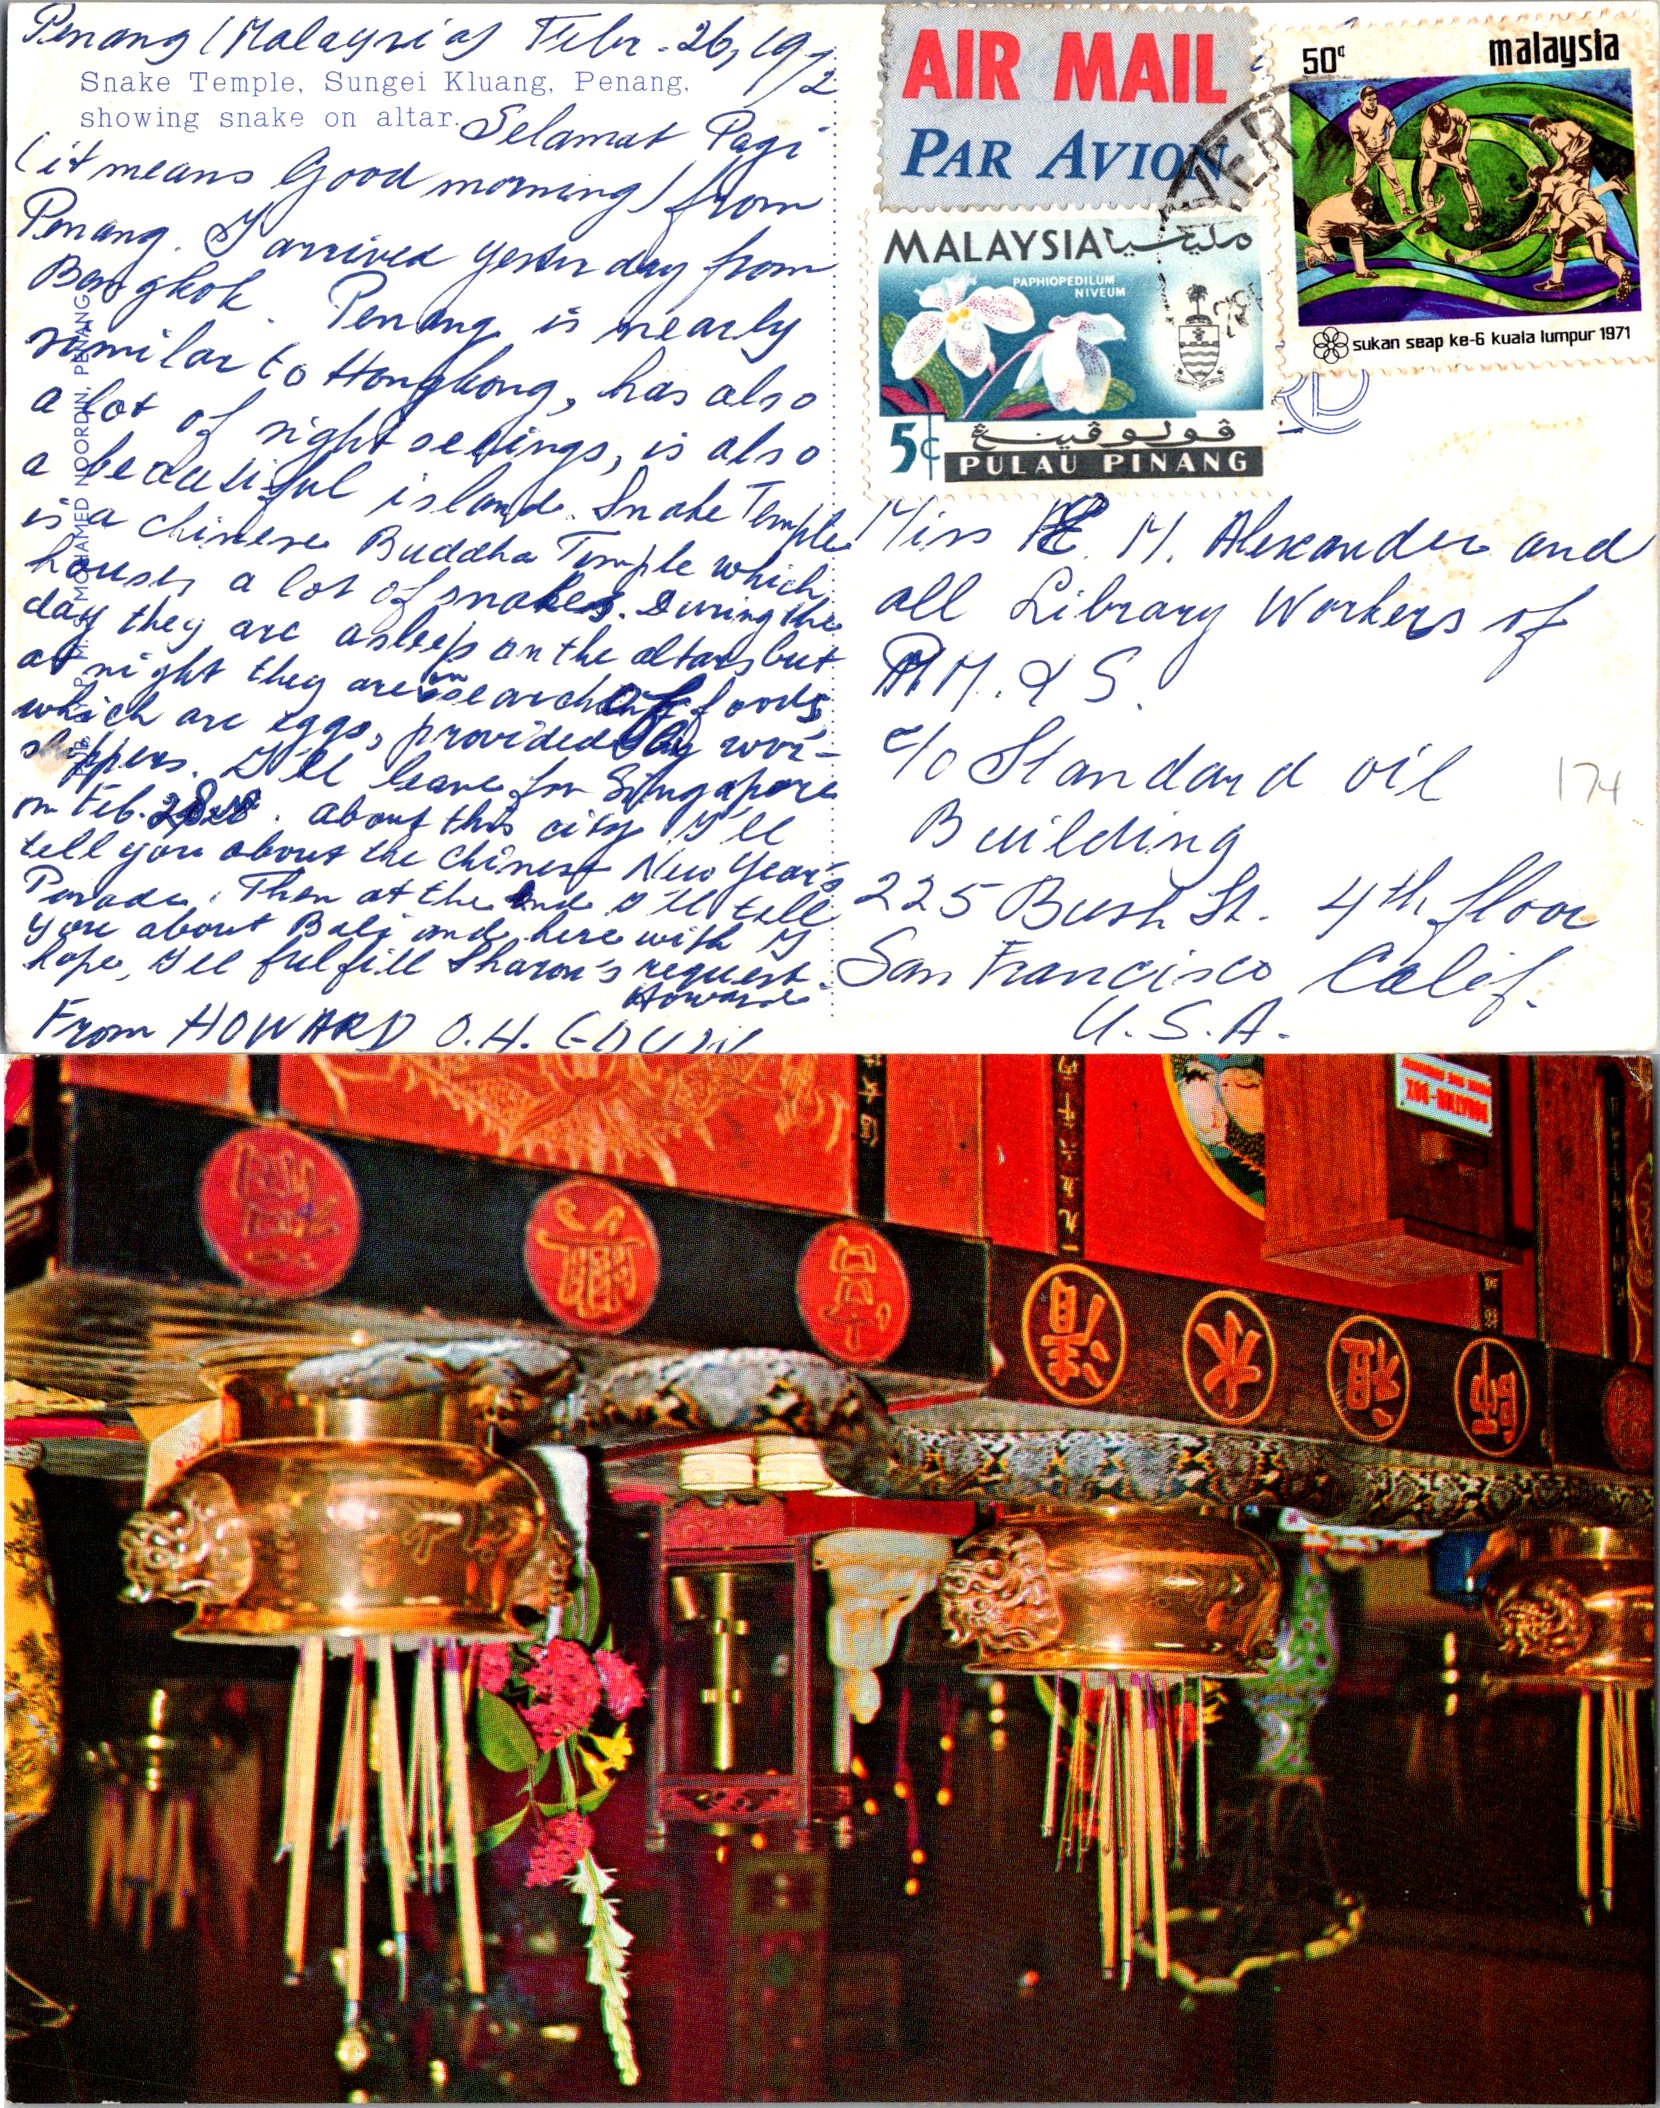 Penang (Malaysia) Febr. 26, 1972
Snake Temple, Sungei Kluang, Penang,
showing snake on altar.
Selamat Pagi
(it means Good morning) from
Penang. I arrived yesterday from
Bangkok. Penang is nearly
similar to Hongkong, has also
a lot of sightseeings, is also
a beautiful island. Snake Temple
is a chinese Buddha Temple which
houses a lot of snakes. During the
day they are asleep on the altars but
at night they are on search of foods,
which are eggs, provided by wor-
shippers. I'll leave for Singapore
on Feb. 28. about this city I'll
tell you about the chinese New Year's
Parade. Then at the end I'll tell
you about Bali and here with I
hope, I'll fulfill Sharon's request.
Howard
From HOWARD O.H.
MOHAMED NOORDIN, PENANG
AIR MAIL
PAR AVION
MALAYSIA مليسيا
PAPHIOPEDILUM
NIVEUM
5¢
ڤولو ڤينڠ
PULAU PINANG
50¢ malaysia
sukan seap ke-6 kuala lumpur 1971
Miss M. Alexander and
all Library Workers of
M. & S.
c/o Standard oil
Building
225 Bush St. 4th floor
San Francisco Calif.
U.S.A.
174
DONATION-BOX
清 水 祖 師